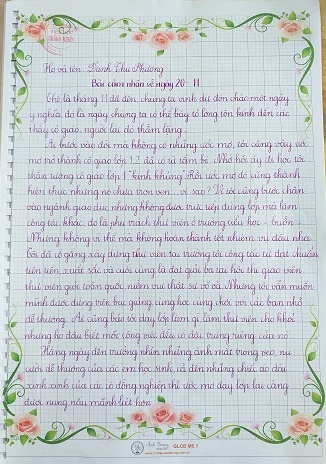 Họ và tên: Danh Thu Phương
Bài cảm nhận về ngày 20 - 11
Thế là tháng 11 đã đến, chúng ta vinh dự đón chào một ngày
ý nghĩa đó là ngày chúng ta có thể bày tỏ lòng tôn kính đến các
thầy cô giáo, người lái đò thầm lặng.
Ai bước vào đời mà không có những ước mơ, tôi cũng vậy ước
mơ trở thành cô giáo lớp 1,2 đã có từ tấm bé. Nhớ hồi ấy đi học tôi
thần tượng cô giáo lớp 1 "kinh khủng". Rồi ước mơ đó cũng thành
hiện thực nhưng nó chưa trọn vẹn...vì sao? Vì tôi cũng bước chân
vào ngành giáo dục nhưng không được trực tiếp đứng lớp mà làm
công tác khác đó là phụ trách thư viện ở trường tiểu học - buồn -
Nhưng không vì thế mà không hoàn thành tốt nhiệm vụ đâu nha.
Tôi đã cố gắng xây dựng thư viện tại trường tôi công tác từ đạt chuẩn,
tiên tiến, xuất sắc và cuối cùng là đạt giải ba tại hội thi giáo viên
thư viện giỏi toàn quốc, niềm vui thật sự vỡ oà. Nhưng tôi vẫn muốn
mình được đứng trên bục giảng, cùng học cùng chơi với các bạn nhỏ
dễ thương. Ai cũng bảo tôi dạy lớp làm gì làm thư viện cho khoẻ
nhưng họ đâu biết mỗi công việc đều có đặc trưng riêng của nó.
Hằng ngày đến trường nhìn những ánh mắt trong veo, nụ
cười dễ thương của các em học sinh, cả đến những chiếc áo dài
xinh xinh của các cô đồng nghiệp thì ước mơ dạy lớp lại càng
được nung nấu mãnh liệt hơn.
Anh Dương
GLCĐ MS.1